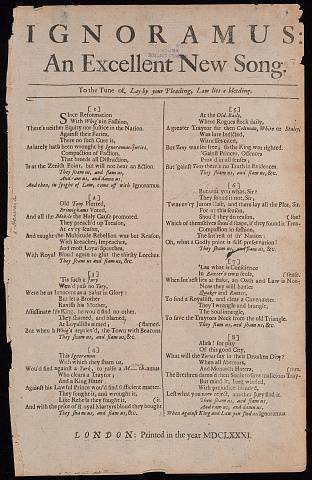 IGNORAMUS:
An Excellent New Song.
To the Tune of, Lay by your Pleading, Law lies a bleeding.
[1]
Since Reformation
With Whig's in Fashion,
There's neither Equity nor Justice in the Nation.
Against their Furies,
There no such Cure is,
As lately hath been wrought by Ignoramus-Juries.
Compaction of Faction,
That breeds all Distraction,
Is at the Zenith Point, but will not bear an Action.
They sham us, and flam us,
And ram us, and damn us,
And then, in spight of Law, come off with Ignoramus.
[2]
Old Tony Plotted,
Brimigham Voted,
And all the Mobile the Holy Cause promoted.
They preach'd up Treason,
At ev'ry Season,
And taught the Multitude Rebellion was but Reason.
With Breaches, Impeaches,
And most Loyal Speeches,
With Royal Blood again to glut the thirsty Leeches.
They sham us and flam us, &c.
[3]
'Tis such a Jury
Wou'd pass no Tory,
Were he as Innocent as a Saint in Glory:
But let a Brother
Ravish his Mother,
Assassinate his King, he wou'd find no other.
They shamed, and blamed,
At Loyallists aimed;
But when a Whig's repriev'd, the Town with Beacons
They sham us and flam us, &c. (flamed.
[4]
This Ignoramus
With which they sham us,
Wou'd find against a York, to raise a M—th-amus
Who clears a Traytor;
And a King Hater
Against his Lawful Prince wou'd find sufficient matter.
They fought it, and wrought it,
Like Rebels they fought it, (it.
And with the price of the royal Martyrs blood they bought
They sham us, and flam us, &c.
[5]
At the Old-Baily,
Where Rogues flock daily,
A greater Traytor far then Coleman, White or Staley,
Was late Indicted,
Witnesses cited,
But Tony was set free, so the King was righted.
'Gainst Princes, Offences
Prov'd in all senses;
But 'gainst a Whig there's no Truth in Evidences.
They sham us, and flam us, &c.
[6]
But wot you what, Sir?
They found it not, Sir,
'Twas ev'ry Jurors Case, and there lay all the Plot, Sir.
For at this season,
Shou'd they do reason (son?
Which of themselves shou'd scape, if they found it Trea-
Compassion in fashion,
The Int'rest of the Nation:
Oh, what a Godly point is self preservation!
They sham us, and flam us, &c.
[7]
'Las what is Conscience
In Baxter's own sense, (sense.
When Int'rest lies at stake, an Oath and Law is Non-
Now they will banter
Quaker and Ranter,
To find a Royallist, and clear a Covenanter.
They'l wrangle and brangle,
The Soul intangle,
To save the Traytors Neck from the old Triangle.
They sham us, and flam us, &c.
[8]
Alas! for pity
Of this good City,
What will the Tories say in their Drunken Ditty?
When all Abettors,
And Monarch Haters,
The Brethren damn'd their Souls to save malicious Tray-
But mind it, long winded, (tors.
With prejudice blinded,
Lest what you now reject, another Jury find it.
Then sham us, and flam us,
And ram us, and damn us,
When against King and Law you find an Ignoramus.
LONDON: Printed in the year MDCLXXXI.